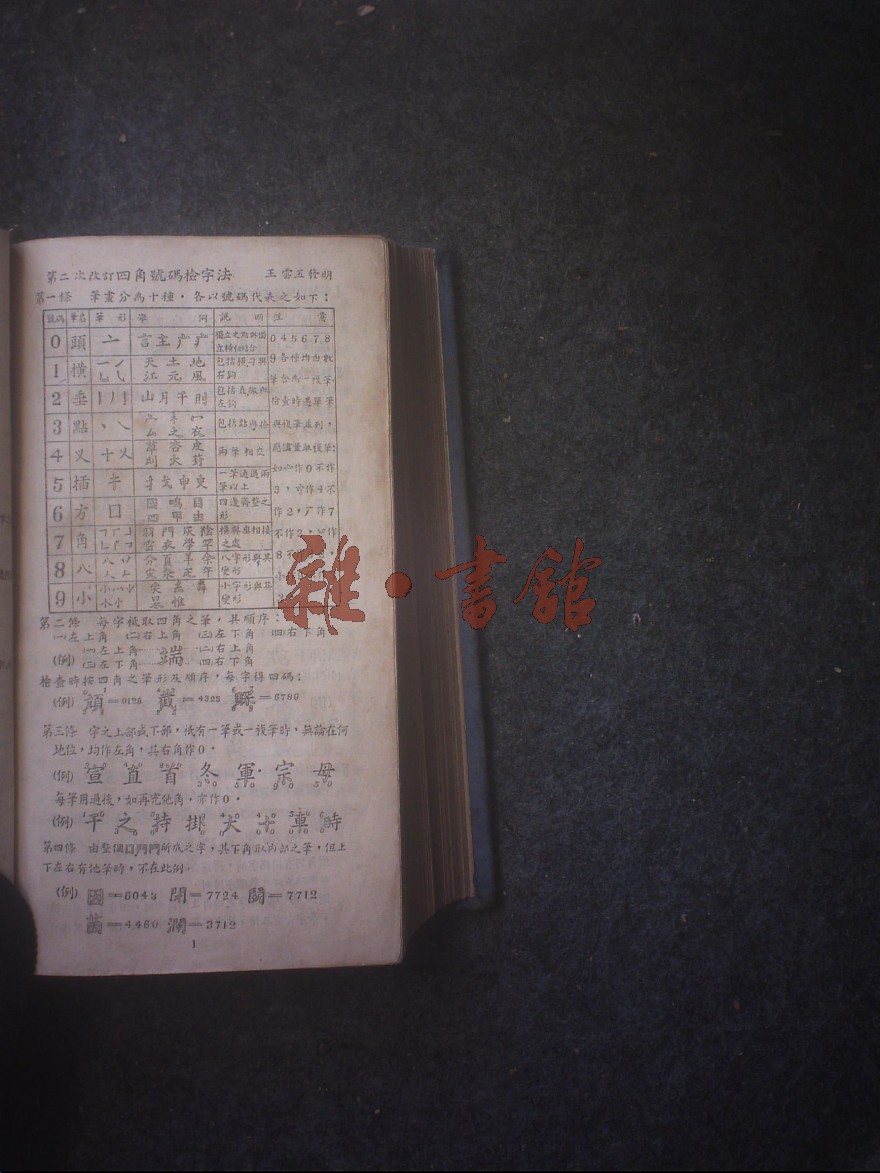 第二次改訂四角號碼檢字法 王雲五發明
第一條 筆畫分為十種,各以號碼代表之如下:
號碼 筆名 筆形 舉例 說明 注意
0 頭 亠 言主广疒 獨立之點與獨立橫相結合
1 橫 天土地江元風 包括橫刁與右鈎
2 垂 山月千則 包括直撇與左鈎
3 點 包括點與捺
4 叉 十乂 草杏皮刈大葑 兩筆相交
5 插 扌 才戈申史 一筆通過兩筆以上
6 方 口 國鳴目四甲由 四邊齊整之形
7 角 羽門灰陰雪衣學罕 橫與垂相接之處
8 八 分頁羊余 八字形與其變形
9 小 小字形與其變形
0 4 5 6 7 8
9 各種均由數
筆合為一複筆
檢查時遇單筆
與複筆並列,
應儘量取複筆;
如亠作0不作
3,寸作4不
作2,厂作7
第二條 每字祇取四角之筆,其順序:
㈠左上角 ㈡右上角 ㈢左下角 ㈣右下角
(例) ㈠左上角 端 ㈡右上角
㈢左下角 ㈣右下角
檢查時按四角之筆形及順序,每字得四碼:
(例) 顏=0128 截=4325 =6789
第三條 字之上部或下部,祇有一筆或一複筆時,無論在何
地位,均作左角,其右角作0。
(例) 宣 直 首 冬 軍 宗 母
每筆用過後,如再充他角,亦作0。
(例) 干 之 持 掛 大 十 車 時
第四條 由整個口門鬥所成之字,其下角取內部之筆,但上
下左右有他筆時,不在此例。
(例) 因=6043 閉=7724 鬭=7712
菌=4460 瀾=3712
1
雜·書館